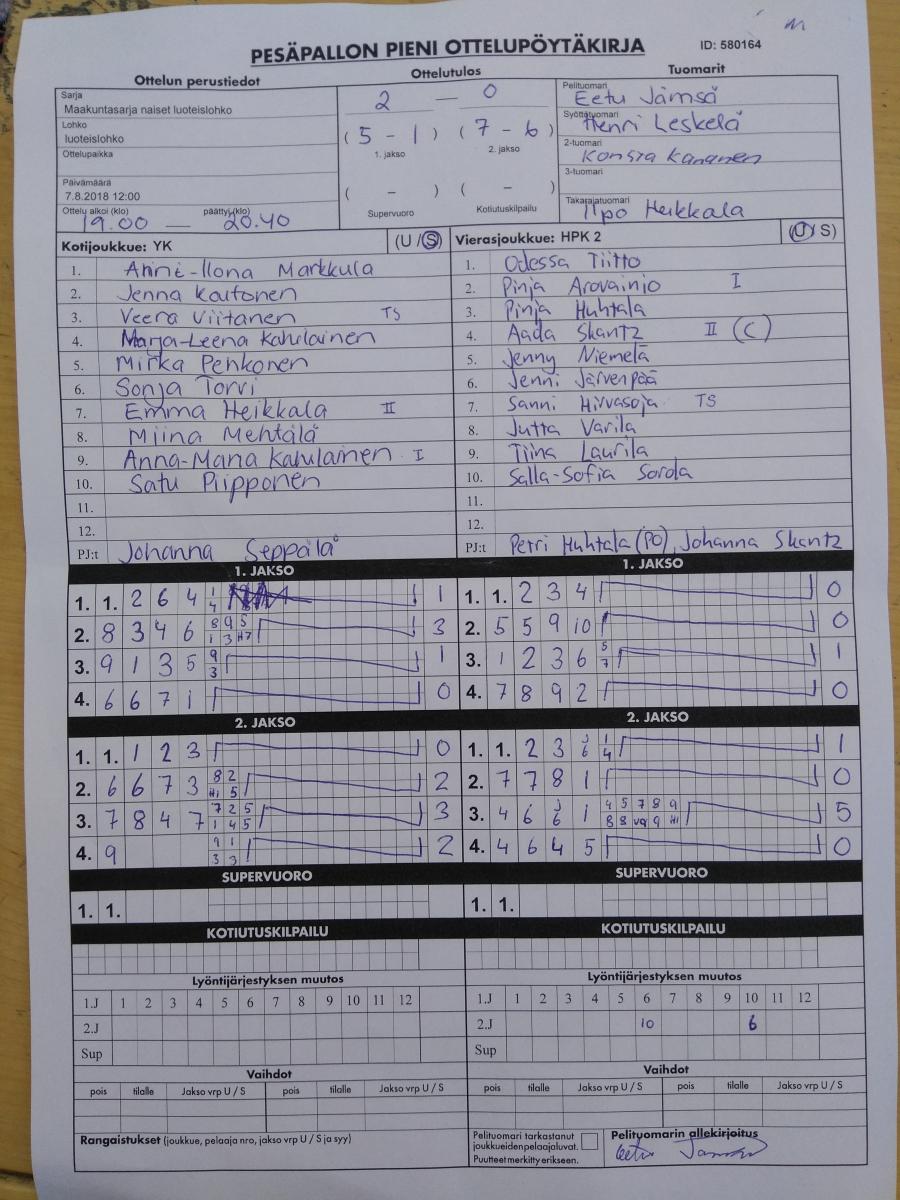 PESÄPALLON PIENI OTTELUPÖYTÄKIRJA
ID: 580164
Ottelun perustiedot
Ottelutulos
Tuomarit
Sarja
Maakuntasarja naiset luoteislohko
Lohko
luoteislohko
Ottelupaikka
Päivämäärä
7.8.2018 12:00
Ottelu alkoi (klo) päättyi (klo)
19.00 — 20.40
2 — 0
( 5 - 1 ) ( 7 - 6 )
1. jakso 2. jakso
( - ) ( - )
Supervuoro Kotiutuskilpailu
Pelituomari
Eetu Jämsä
Syöttötuomari
Henri Leskelä
2-tuomari
Kananen
3-tuomari
Takarajatuomari
Ilpo Heikkala
Kotijoukkue: YK (U / S)
1. Anni-Ilona Markkula
2. Jenna Koutonen
3. Veera Viitanen TS
4. Marja-Leena Kahulainen
5. Mirka Penkonen
6. Sonja Torvi
7. Emma Heikkala II
8. Miina Mehtälä
9. Anna-Maria Kahulainen I
10. Satu Piipponen
11.
12.
PJ:t Johanna Seppälä
Vierasjoukkue: HPK 2 (U / S)
1. Odessa Tiitto
2. Pinja Arovainio I
3. Pinja Huhtala
4. Aada Skantz II (C)
5. Jenny Niemelä
6. Jenni Järvenpää
7. Sanni Hirvasoja TS
8. Jutta Varila
9. Tiina Laurila
10. Salla-Sofia Sorola
11.
12.
PJ:t Petri Huhtala (PO), Johanna Skantz
1. JAKSO
1. 1. 2 6 4 1 1
4
2. 8 3 4 6 8 9 5 3
1 3 H7
3. 9 1 3 5 9 1
3
4. 6 6 7 1 0
1. JAKSO
1. 1. 2 3 4 0
2. 5 5 9 10 0
3. 1 2 3 6 5 1
7
4. 7 8 9 2 0
2. JAKSO
1. 1. 1 2 3 0
2. 6 6 7 3 8 2 2
H1 5
3. 7 8 4 7 7 2 5 3
1 4 5
4. 9 9 1 2
3 3
2. JAKSO
1. 1. 2 3 6 1 1
4
2. 7 7 8 1 0
3. 4 6 6 1 4 5 7 8 9 5
8 8 9 H1
4. 4 6 4 5 0
SUPERVUORO
1. 1.
SUPERVUORO
1. 1.
KOTIUTUSKILPAILU
KOTIUTUSKILPAILU
Lyöntijärjestyksen muutos
1.J 1 2 3 4 5 6 7 8 9 10 11 12
2.J
Sup
Lyöntijärjestyksen muutos
1.J 1 2 3 4 5 6 7 8 9 10 11 12
2.J 10 6
Sup
Vaihdot
pois tilalle Jakso vrp U / S pois tilalle Jakso vrp U / S
Vaihdot
pois tilalle Jakso vrp U / S pois tilalle Jakso vrp U / S
Rangaistukset (joukkue, pelaaja nro, jakso vrp U / S ja syy)
Pelituomari tarkastanut
joukkueiden pelaajaluvat.
Puutteet merkitty erikseen.
Pelituomarin allekirjoitus